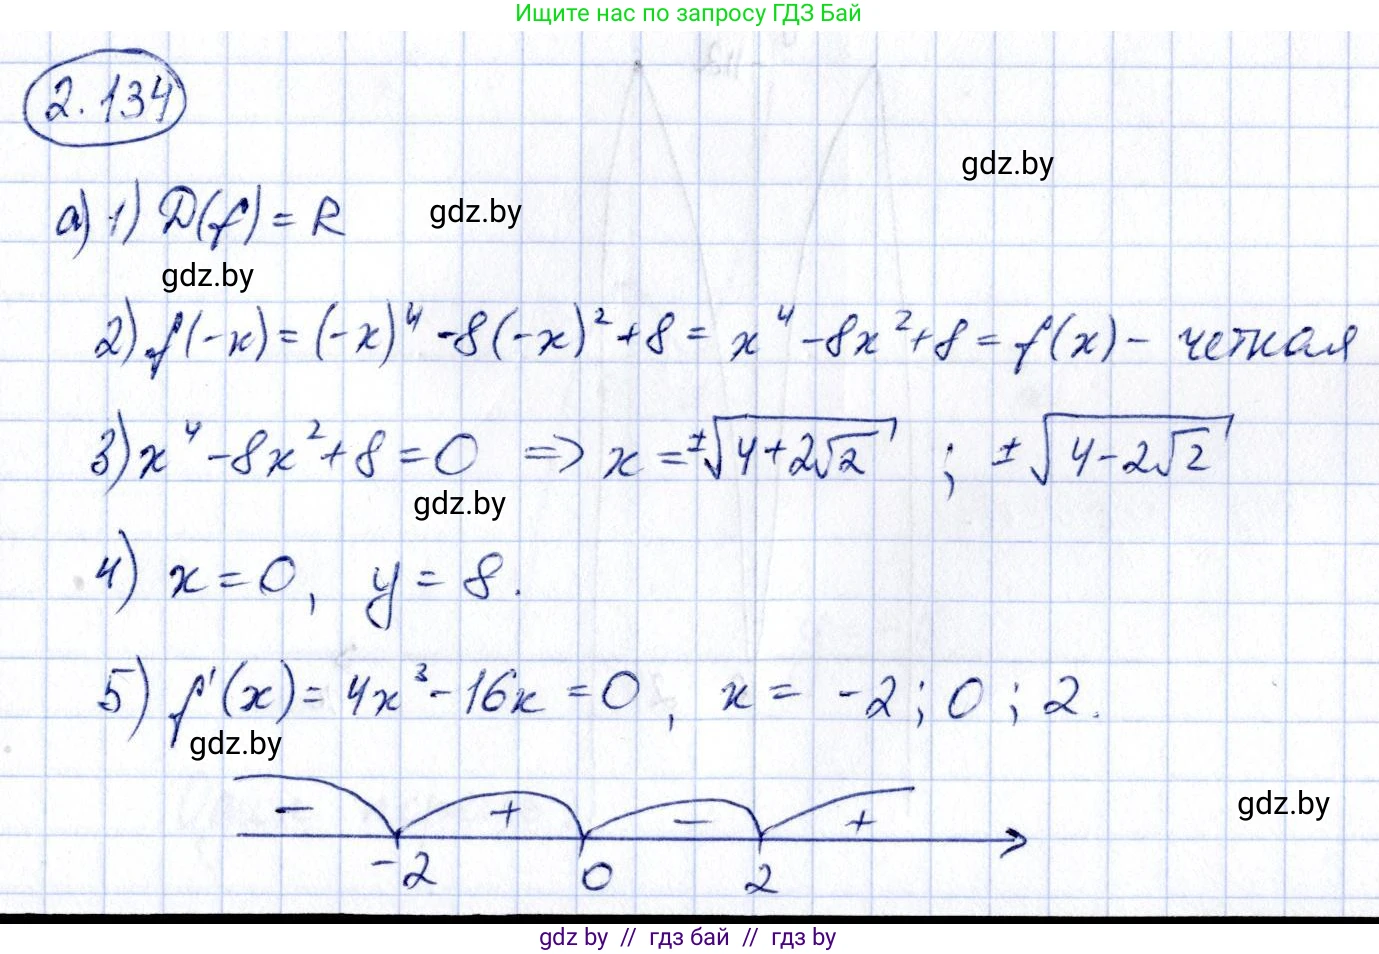 Ищите нас по запросу ГДЗ Бай
2.134
gdz.by
а) 1) D(f) = R
gdz.by
gdz.by
2) f(-x) = (-x)⁴ - 8(-x)² + 8 = x⁴ - 8x² + 8 = f(x) - четная
3) x⁴ - 8x² + 8 = 0 => x = ±√(4+2√2) ; ±√(4-2√2)
gdz.by
4) x = 0, y = 8.
5) f'(x) = 4x³ - 16x = 0, x = -2; 0; 2.
gdz.by
- + - +
gdz.by
-2 0 2
gdz by // гдз бай // гдз by